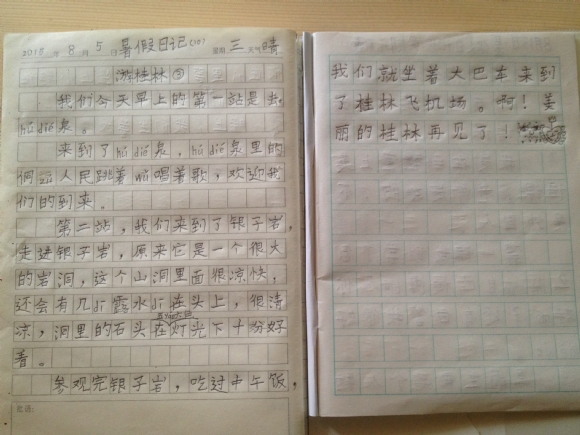 2015 年 8 月 5 日 暑假日记(10) 星期 三 天气 晴
游桂林③
我们今天早上的第一站是去
hú dié泉。
来到了hú dié泉,hú dié泉里的
人民跳着wǔ唱着歌,欢迎我
们的到来。
第二站,我们来到了银子岩,
走进银子岩,原来它是一个很大
的岩洞,这个山洞里面很凉快,
还会有几dī露水dī在头上,很清
凉,洞里的石头在五颜六色灯光下十分好
看。
参观完银子岩,吃过中午饭,
批语:
我们就坐着大巴车来到
了桂林飞机场。啊!美
丽的桂林再见了!